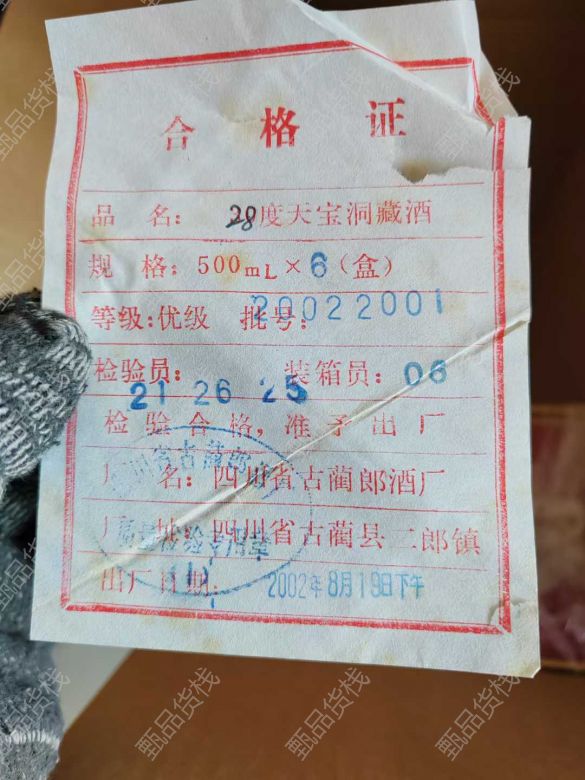 合格证
品 名： 28度天宝洞藏酒
规 格：500mL×6（盒）
等级：优级 批号：20022001
检验员： 装箱员：06
21 26 25
检验合格，准予出厂
厂 名：四川省古蔺郎酒厂
厂 址：四川省古蔺县二郎镇
出厂日期： 2002年8月19日下午
甄品货栈